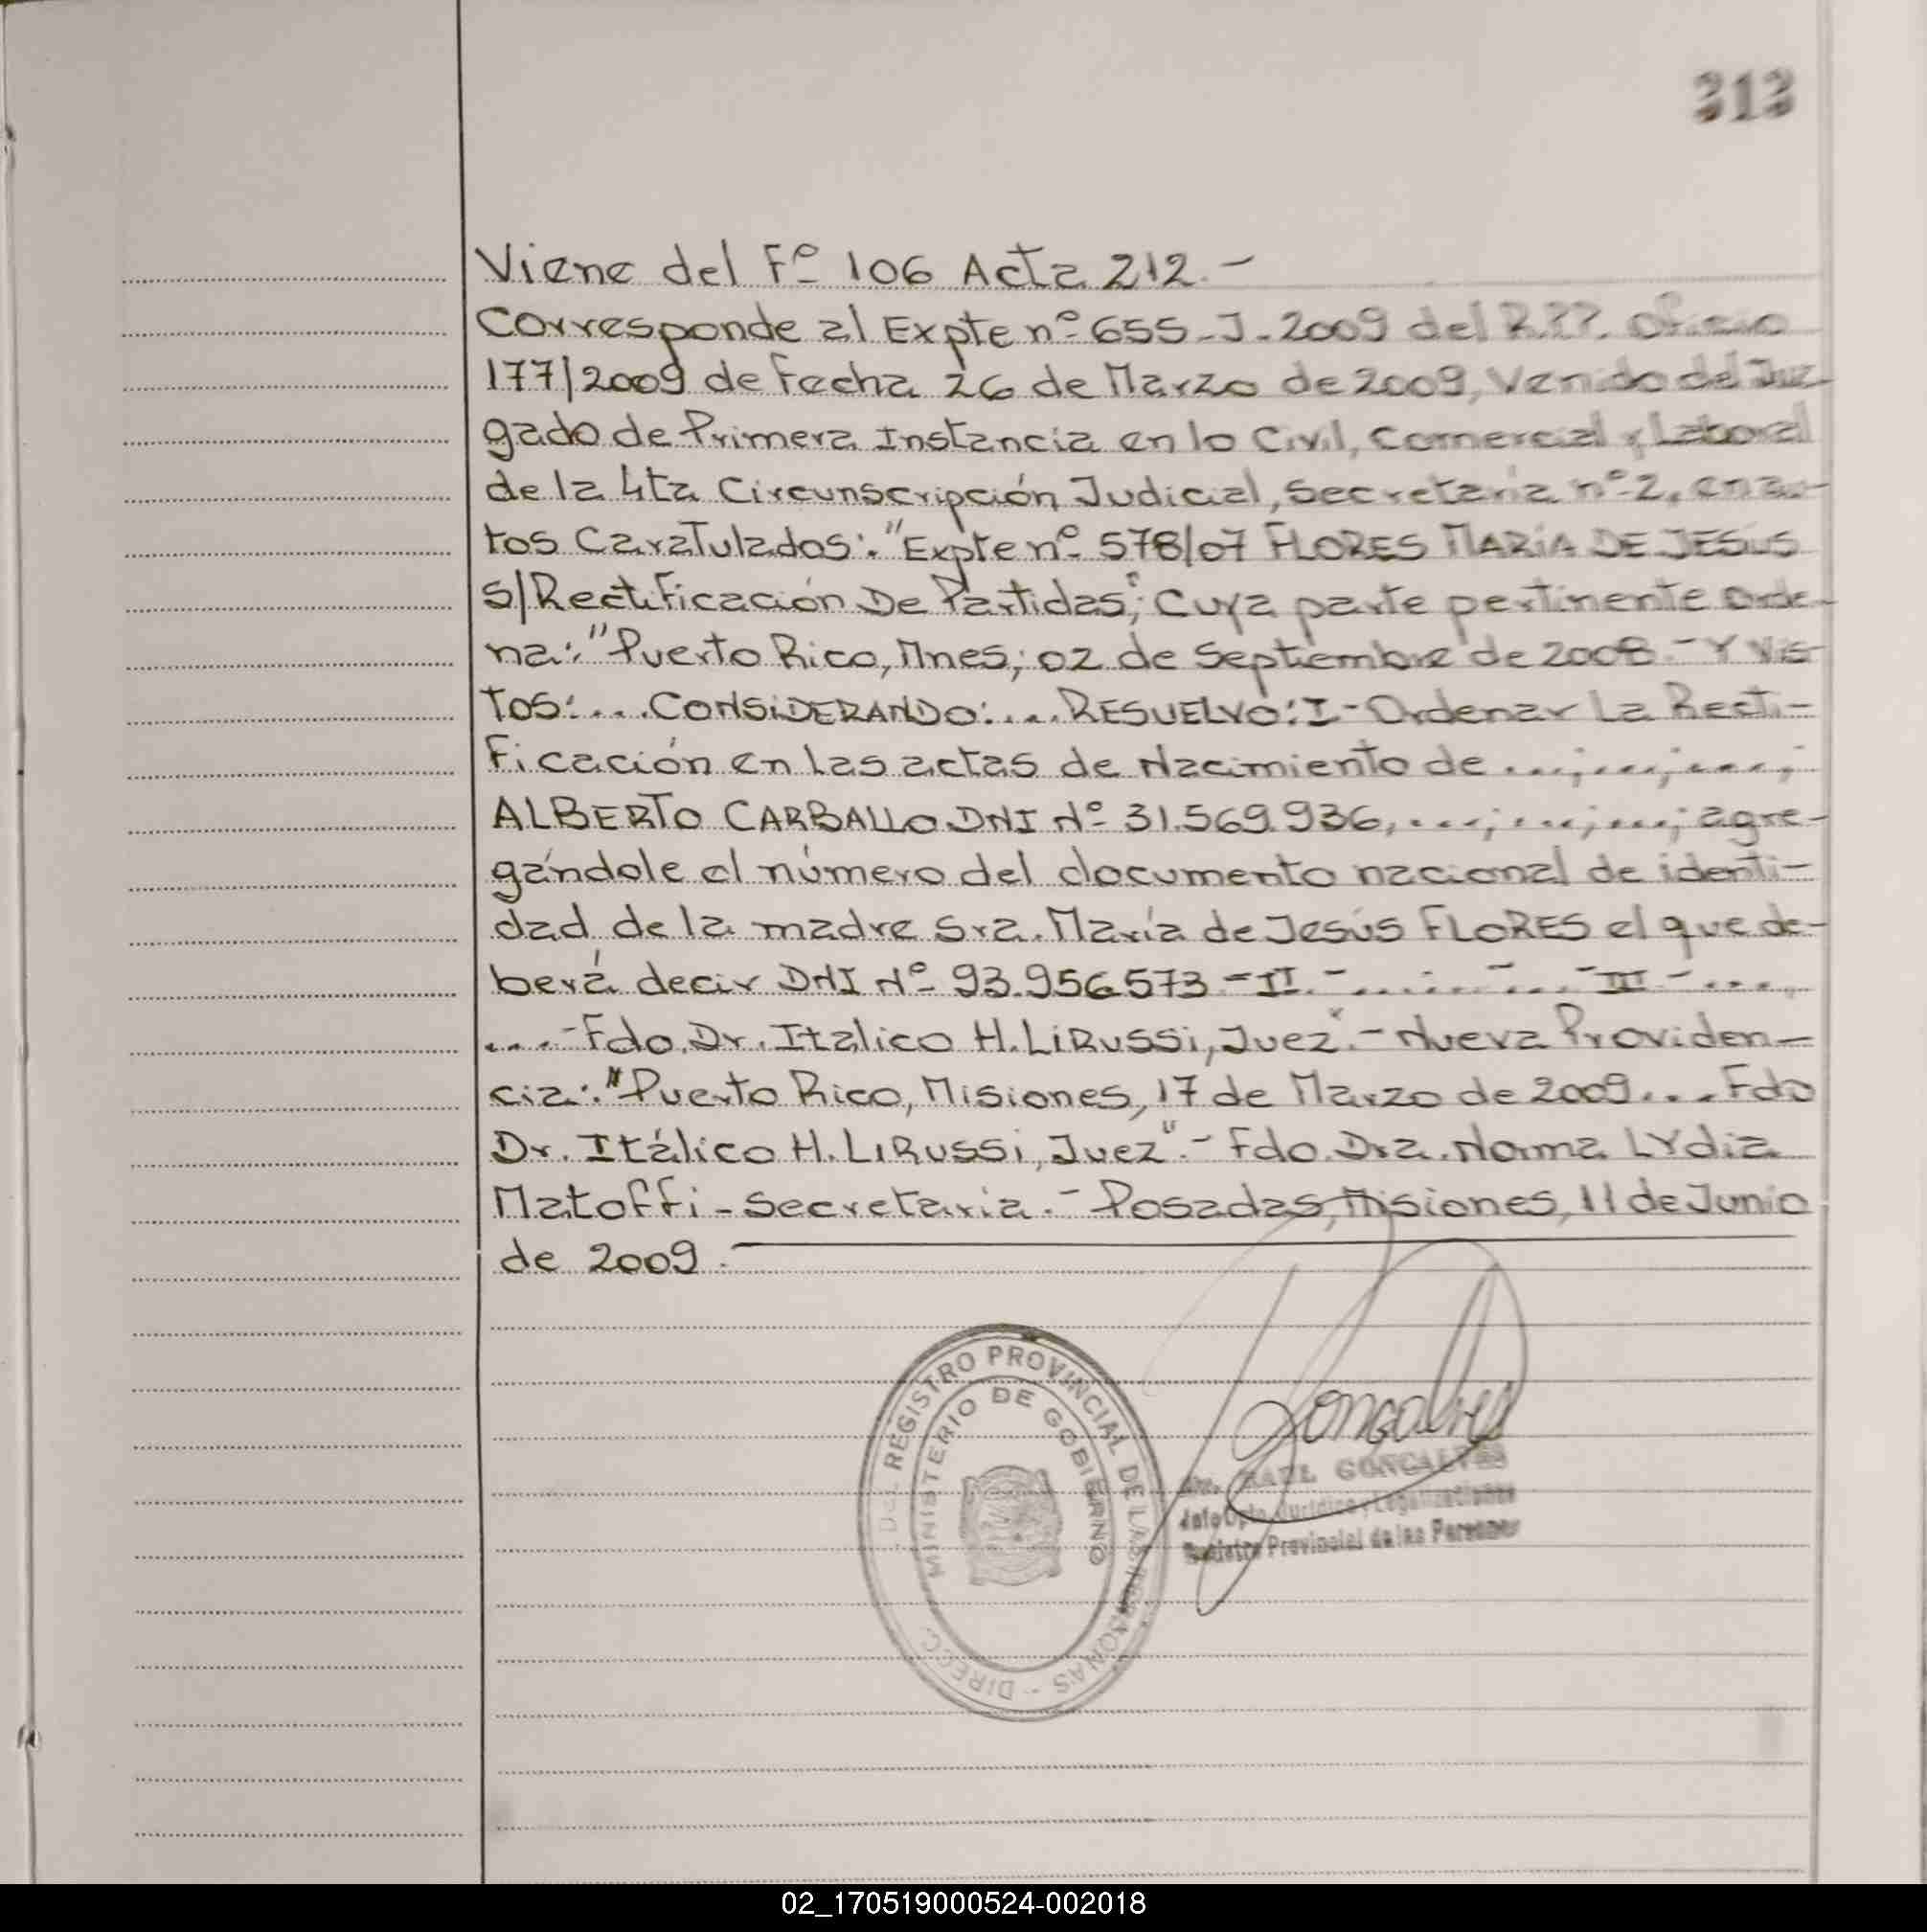 313
Viene del Fº 106 Acta 212.-
Corresponde al Expte nº 655-J-2009 del R.P.P. Oficio
177/2009 de Fecha 26 de Marzo de 2009, Venido del Juz-
gado de Primera Instancia en lo Civil, Comercial y Laboral
de la 4ta Circunscripción Judicial, Secretaría nº 2, en au-
tos Caratulados: "Expte nº 578/07 FLORES MARÍA DE JESÚS
S/Rectificación De Partidas", Cuya parte pertinente orde-
na: "Puerto Rico, Mnes; 02 de Septiembre de 2008.- Y Vis-
tos:... CONSIDERANDO:.... RESUELVO: I- Ordenar La Recti-
ficación en las actas de Nacimiento de ...;...;....;
ALBERTO CARBALLO DNI Nº 31.569.936, ...;...;...; agre-
gándole el número del documento nacional de identi-
dad de la madre Sra. María de Jesús FLORES el que de-
berá decir DNI Nº 93.956573 - II.-.......-...-III-....
...-Fdo. Dr. Italico H. LIRUSSI, Juez".- Nueva Providen-
cia: "Puerto Rico, Misiones, 17 de Marzo de 2009.... Fdo
Dr. Itálico H. LIRUSSI, Juez".- Fdo. Dra. Norma Lydia
Matoffi - Secretaria.- Posadas, Misiones, 11 de Junio
de 2009.-
REGISTRO PROVINCIAL DE LAS PERSONAS - DIRECC.
MINISTERIO DE GOBIERNO
Goncalves
RAUL GONCALVES
Jefe Dpto Jurídico y Legalizaciones
Registro Provincial de las Personas
02_170519000524-002018